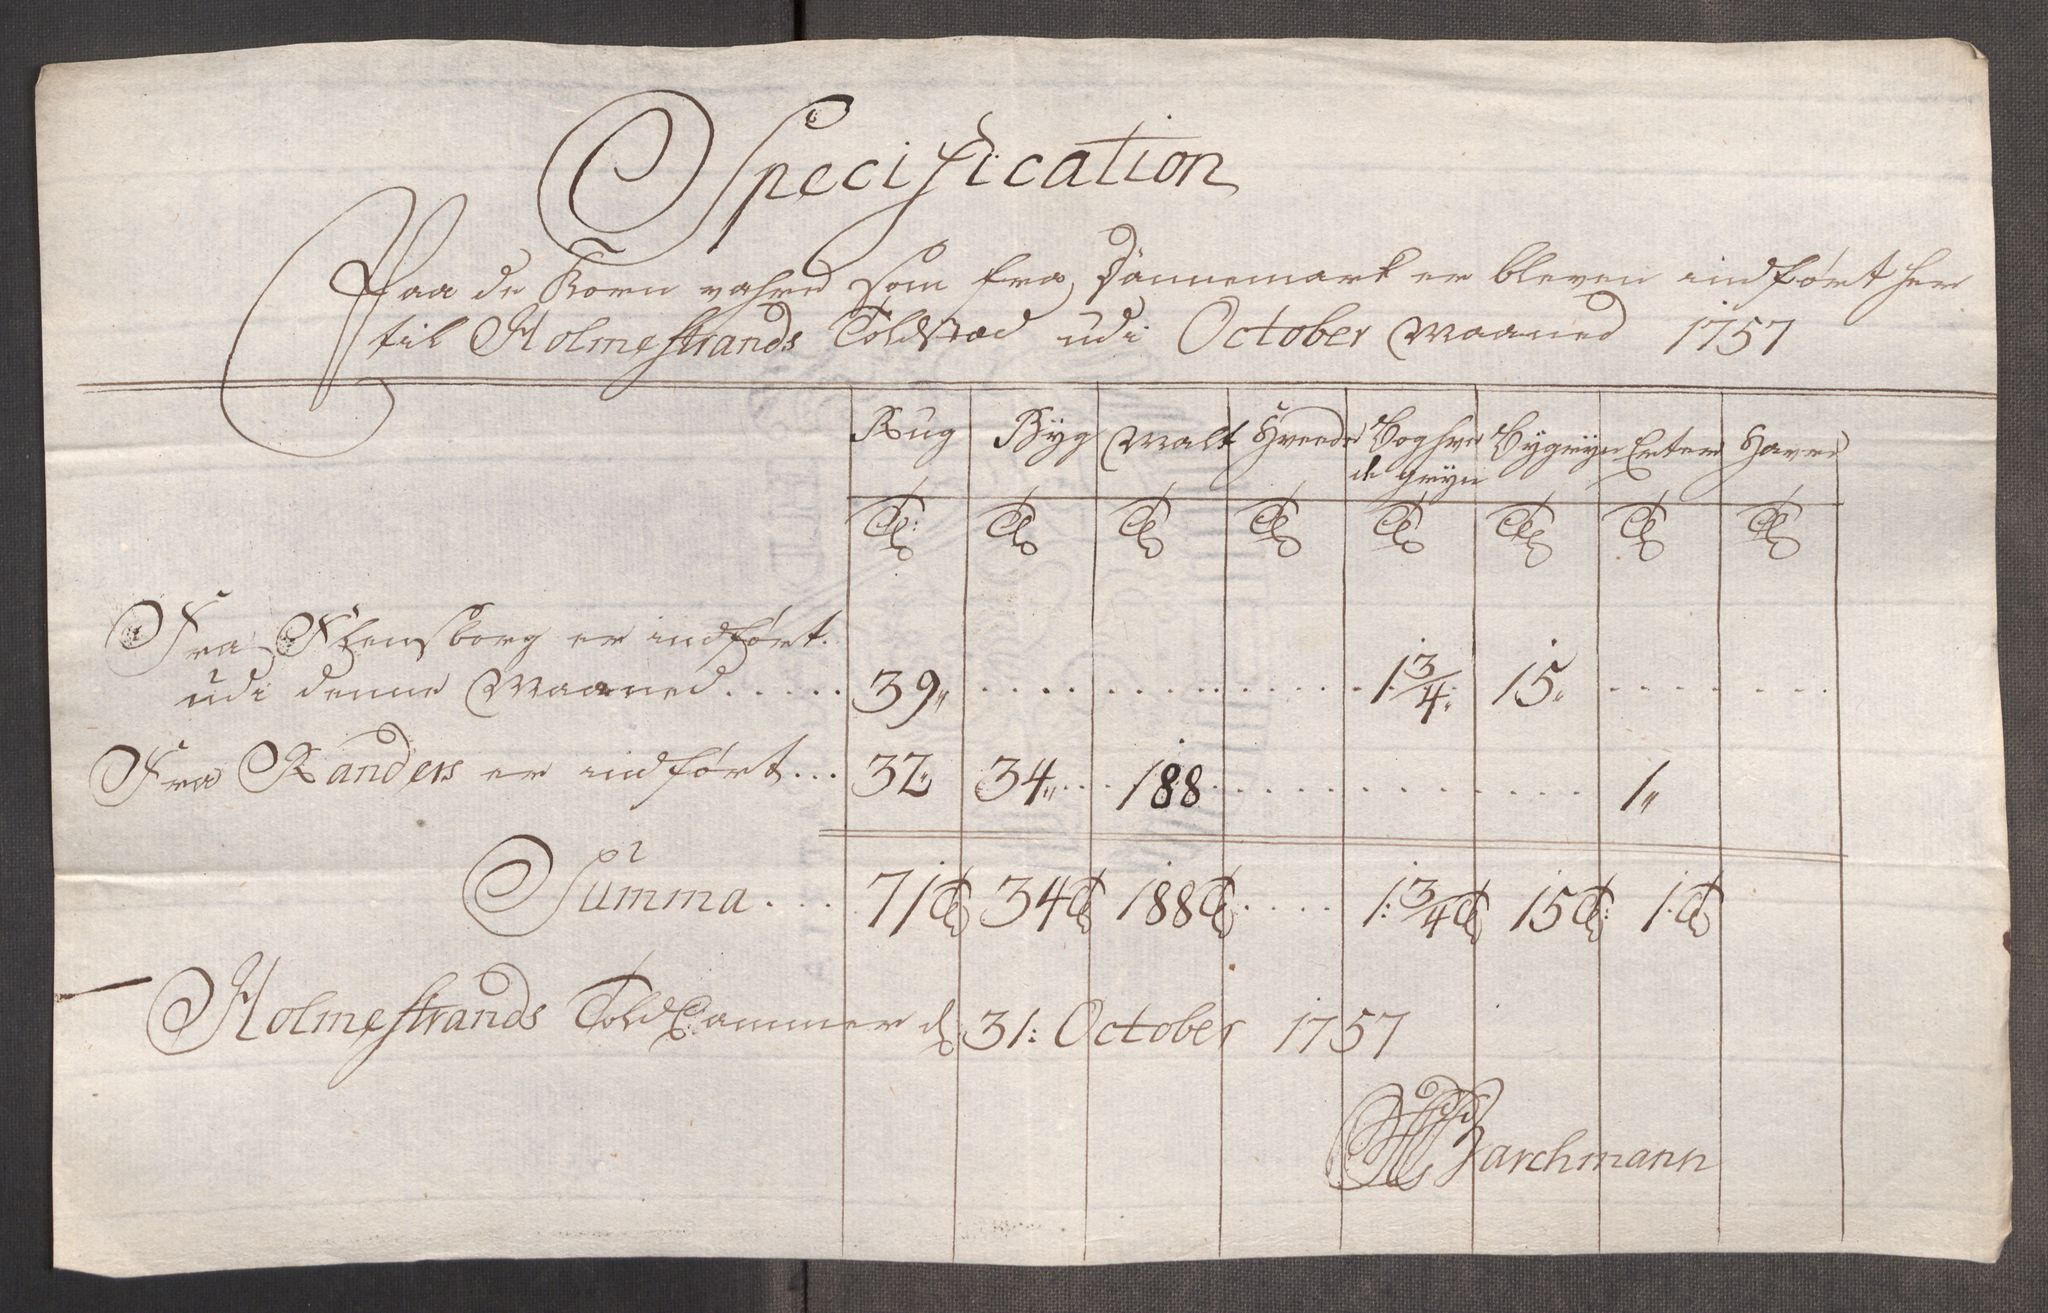 Specification
Paa de Korn vahre som fra Dannemark er bleven indført her
til Holmestrands Toldstæd udi October Maaned 1757
Rug Byg Malt Hveede Boghve Bygryn Erter Havre
de gryn
Tr: Tr Tr Tr Tr Tr Tr Tr
Fra Flensborg er indført
udi denne Maaned ..... 39„ .......... 1 3/4: 15„ ......
Fra Randers er indført... 32„ 34„... 188 ......... 1„
Summa .... 71 Tr 34 Tr 188 Tr .... 1: 3/4 Tr 15 Tr: 1 Tr
Holmestrands Told Cammer d. 31: October 1757
Barchmann